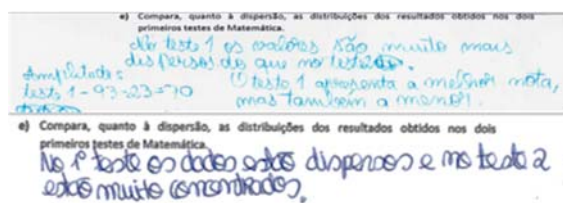 e) Compara, quanto à dispersão, as distribuições dos resultados obtidos nos dois
primeiros testes de Matemática.
No teste 1 os valores são muito mais
dispersos do que no teste
Amplitude:
teste 1 - 93-23=70
O teste 1 apresenta a melhor nota,
mas também a menor.
e) Compara, quanto à dispersão, as distribuições dos resultados obtidos nos dois
primeiros testes de Matemática.
No 1º teste os dados estão dispersos e no teste 2
estão muito concentrados.